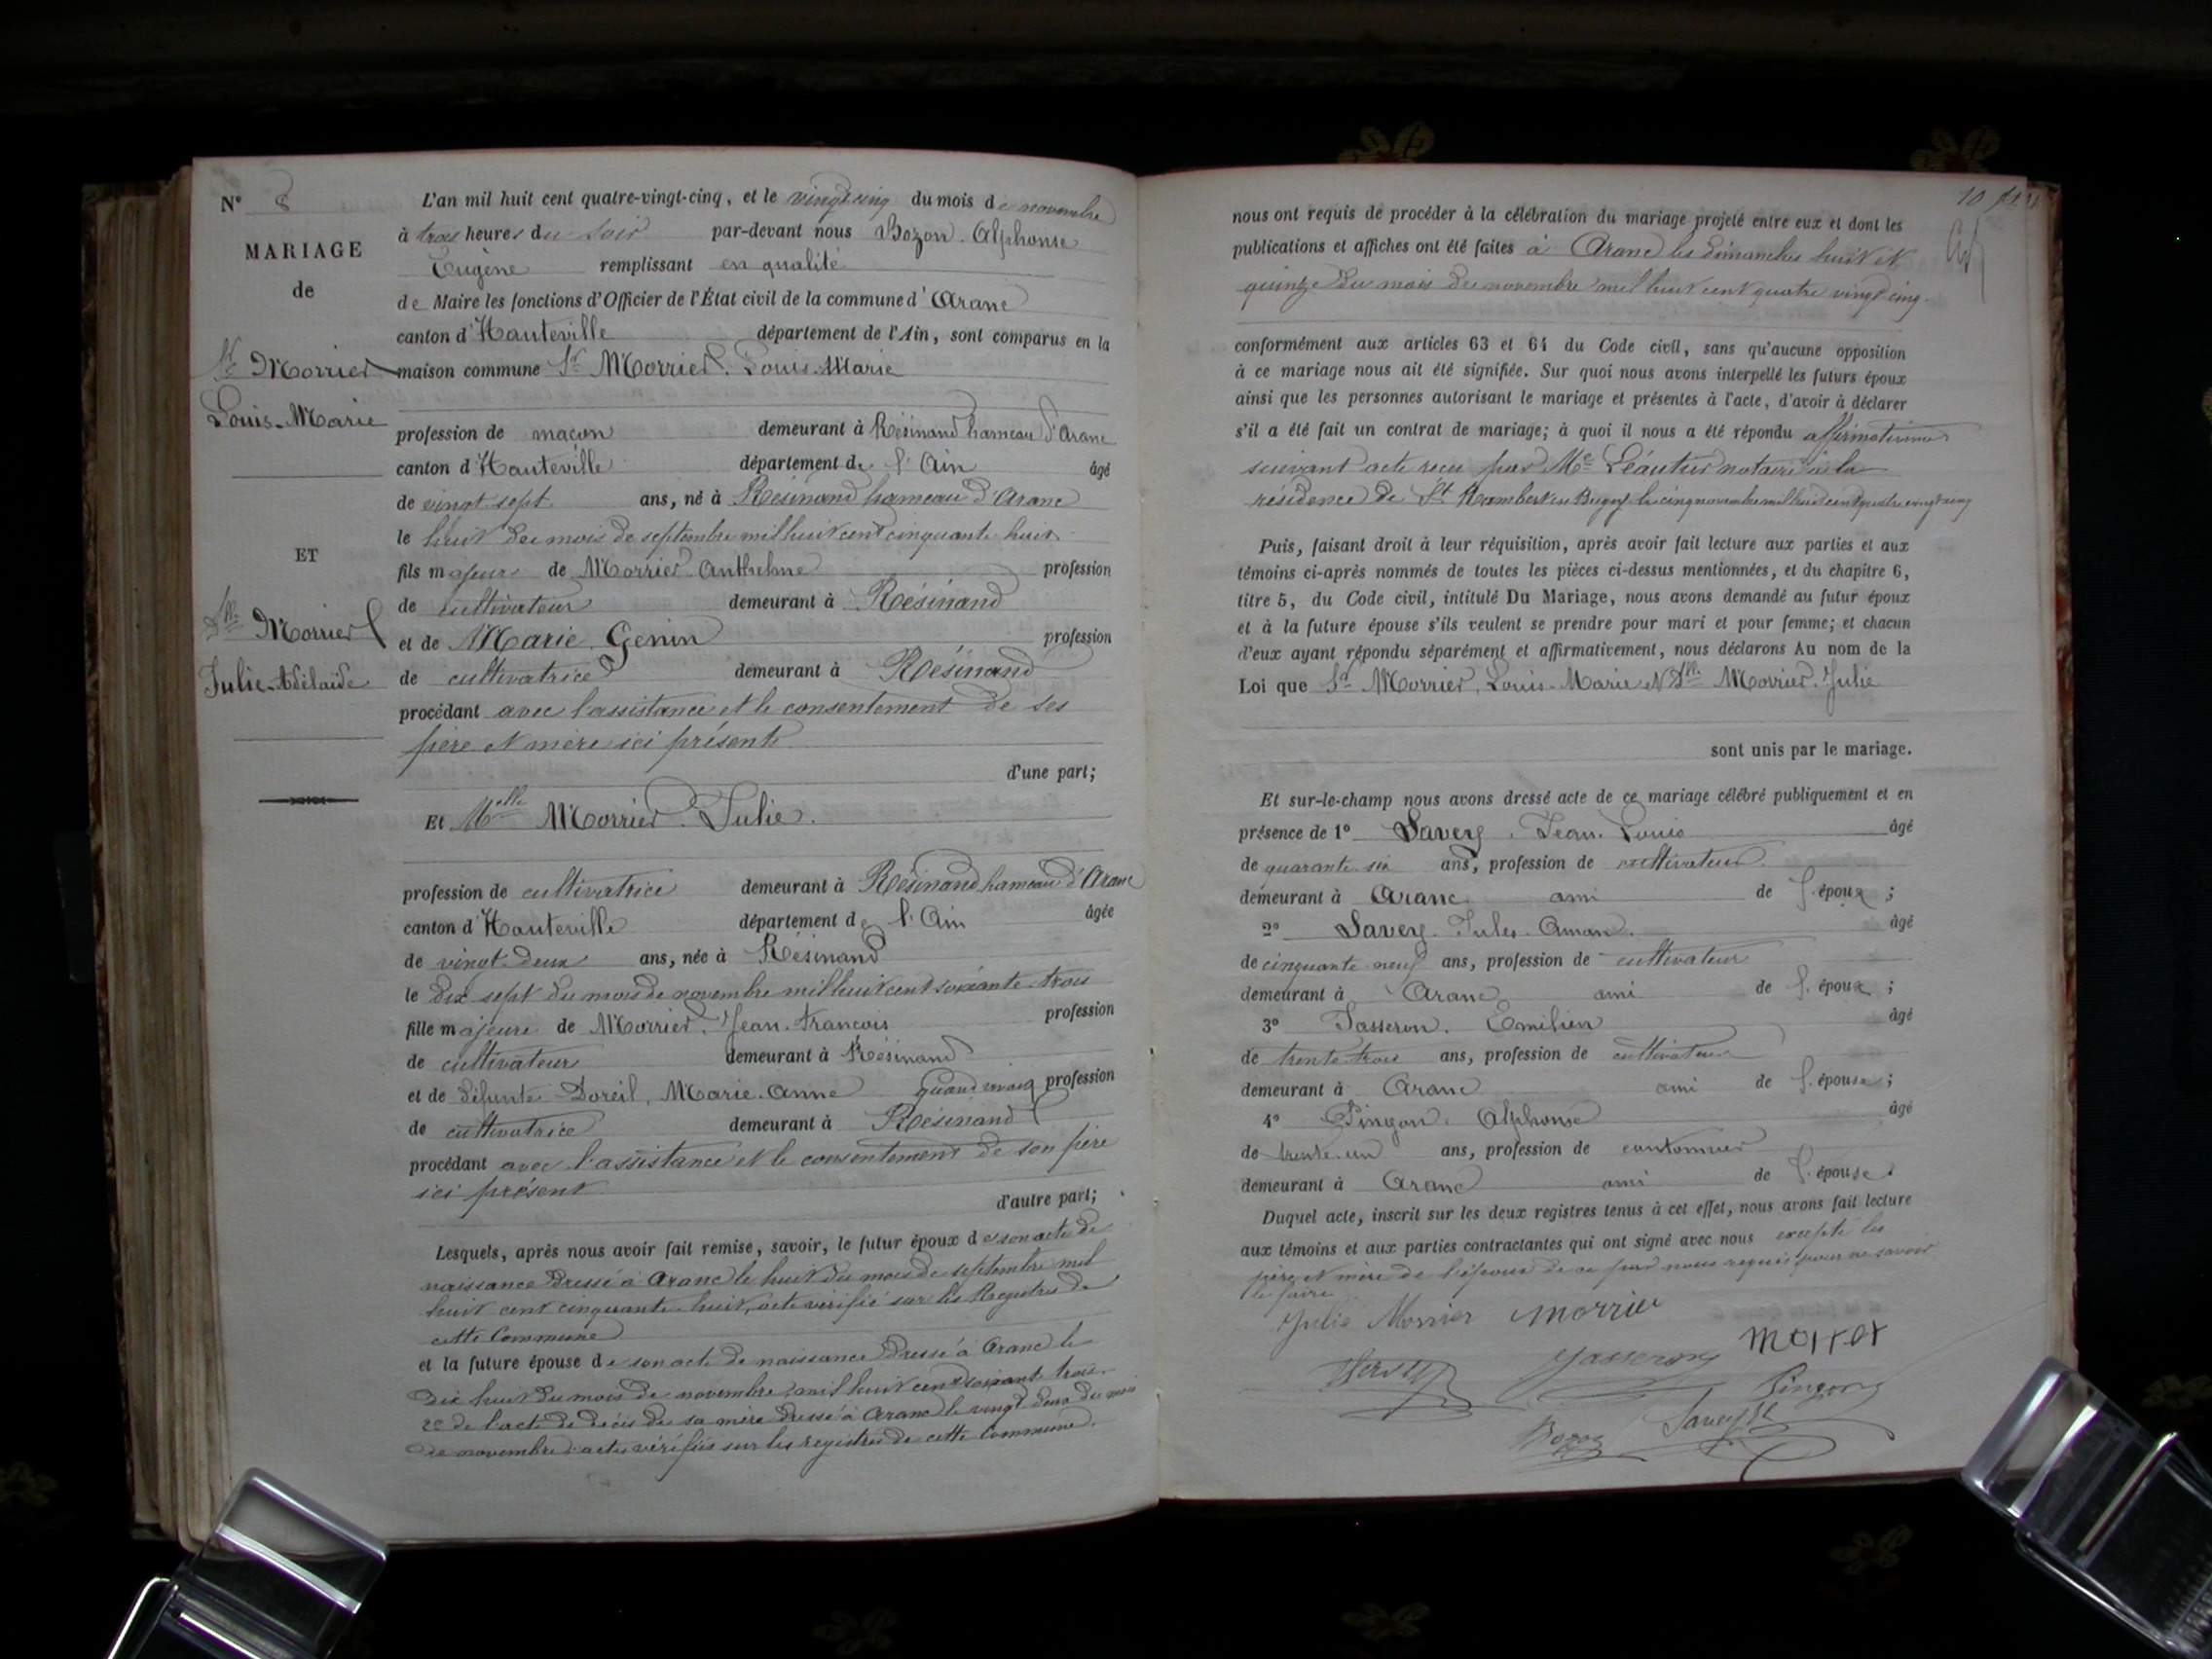 N° 8
MARIAGE
de
Sr Morrier
Louis-Marie
ET
Dlle Morrier
Julie-Adélaïde
L'an mil huit cent quatre-vingt-cinq, et le vingt cinq du mois de novembre
à trois heures du soir par-devant nous Bozon Alphonse
Eugène remplissant en qualité
de Maire les fonctions d'Officier de l'État civil de la commune d'Aranc
canton d'Hauteville département de l'Ain, sont comparus en la
maison commune Sr Morrier Louis-Marie
profession de maçon demeurant à Résinand hameau d'Aranc
canton d'Hauteville département de l'Ain âgé
de vingt sept ans, né à Résinand hameau d'Aranc
le huit du mois de septembre mil huit cent cinquante huit
fils majeur de Morrier Anthelme profession
de cultivateur demeurant à Résinand
et de Marie Genin profession
de cultivatrice demeurant à Résinand
procédant avec l'assistance et le consentement de ses
père et mère ici présents
d'une part;
Et Melle Morrier Julie.
profession de cultivatrice demeurant à Résinand hameau d'Aranc
canton d'Hauteville département de l'Ain âgée
de vingt-deux ans, née à Résinand
le dix sept du mois de novembre mil huit cent soixante trois
fille majeure de Morrier Jean-François profession
de cultivateur demeurant à Résinand
et de défunte Doreil, Marie-Anne quand vivait profession
de cultivatrice demeurant à Résinand
procédant avec l'assistance et le consentement de son père
ici présent
d'autre part;
Lesquels, après nous avoir fait remise, savoir, le futur époux de son acte de
naissance dressé à Aranc le huit du mois de septembre mil
huit cent cinquante huit, acte vérifié sur les Registres de
cette Commune
et la future épouse de son acte de naissance dressé à Aranc le
dix huit du mois de novembre mil huit cent soixante trois
2° de l'acte de décès de sa mère dressé à Aranc le vingt deux du mois
de novembre actes vérifiés sur les registres de cette Commune.
10
nous ont requis de procéder à la célébration du mariage projeté entre eux et dont les
publications et affiches ont été faites à Aranc les dimanches huit et
quinze du mois de novembre mil huit cent quatre vingt cinq.
conformément aux articles 63 et 64 du Code civil, sans qu'aucune opposition
à ce mariage nous ait été signifiée. Sur quoi nous avons interpellé les futurs époux
ainsi que les personnes autorisant le mariage et présentes à l'acte, d'avoir à déclarer
s'il a été fait un contrat de mariage; à quoi il nous a été répondu affirmativement
suivant acte reçu par Me Léautier notaire à la
résidence de St Rambert en Bugey le cinq novembre mil huit cent quatre vingt cinq
Puis, faisant droit à leur réquisition, après avoir fait lecture aux parties et aux
témoins ci-après nommés de toutes les pièces ci-dessus mentionnées, et du chapitre 6,
titre 5, du Code civil, intitulé Du Mariage, nous avons demandé au futur époux
et à la future épouse s'ils veulent se prendre pour mari et pour femme; et chacun
d'eux ayant répondu séparément et affirmativement, nous déclarons Au nom de la
Loi que Sr Morrier, Louis-Marie et Dlle Morrier Julie
sont unis par le mariage.
Et sur-le-champ nous avons dressé acte de ce mariage célébré publiquement et en
présence de 1° Savey Jean-Louis âgé
de quarante six ans, profession de cultivateur
demeurant à Aranc ami de l'époux;
2° Savey Jules Aman. âgé
de cinquante neuf ans, profession de cultivateur
demeurant à Aranc ami de l'époux;
3° Jasseron Emilien âgé
de trente trois ans, profession de cultivateur
demeurant à Aranc ami de l'épouse;
4° Pingon Alphonse âgé
de trente-un ans, profession de cantonnier
demeurant à Aranc ami de l'épouse.
Duquel acte, inscrit sur les deux registres tenus à cet effet, nous avons fait lecture
aux témoins et aux parties contractantes qui ont signé avec nous excepté les
père et mère de l'époux de ce par nous requis pour ne savoir
le faire
Julie Morrier Morrier
Morrier
Jasseron
Pingon
Bozon